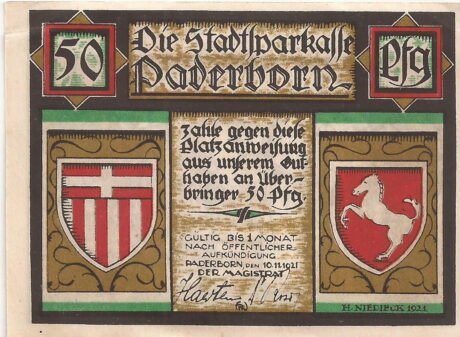 50
Die Stadtsparkasse
Paderborn
Pfg
zahle gegen diese
Platzanweisung
aus unserem Gut-
haben an Über-
bringer 50 Pfg.
GÜLTIG BIS 1 MONAT
NACH ÖFFENTLICHER
AUFKÜNDIGUNG
PADERBORN DEN 10.11.1921
DER MAGISTRAT
H. NIEDIECK 1921